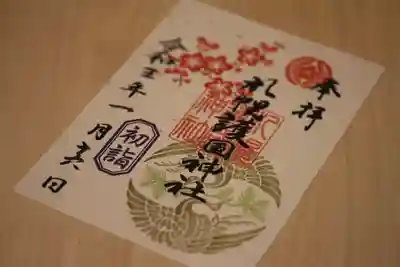 奉拝
札幌護国神社
令和五年一月日
初詣